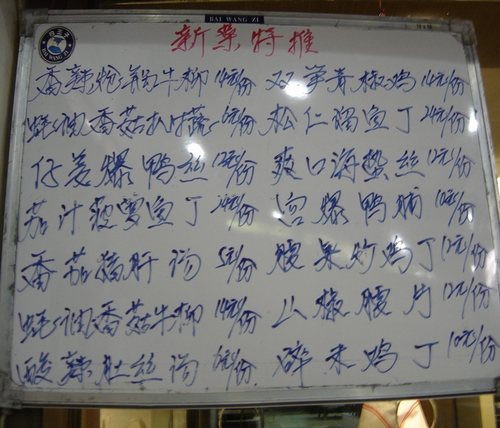 BAI WANG ZI
新菜特推
香辣炮锅牛柳 14元/份 双笋青椒鸡 14元/份
蚝油香菇扒时蔬 6元/份 松仁溜鱼丁 24元/份
仔姜爆鸭丝 12元/份 爽口海蜇丝 12元/份
茄汁菠萝鱼丁 24元/份 宫爆鸭脯 10元/份
番茄猪肝汤 5元/份 腰果炒鸡丁 12元/份
蚝油香菇牛柳 14元/份 山椒腰片 12元/份
酸辣肚丝汤 6元/份 碎米鸡丁 10元/份